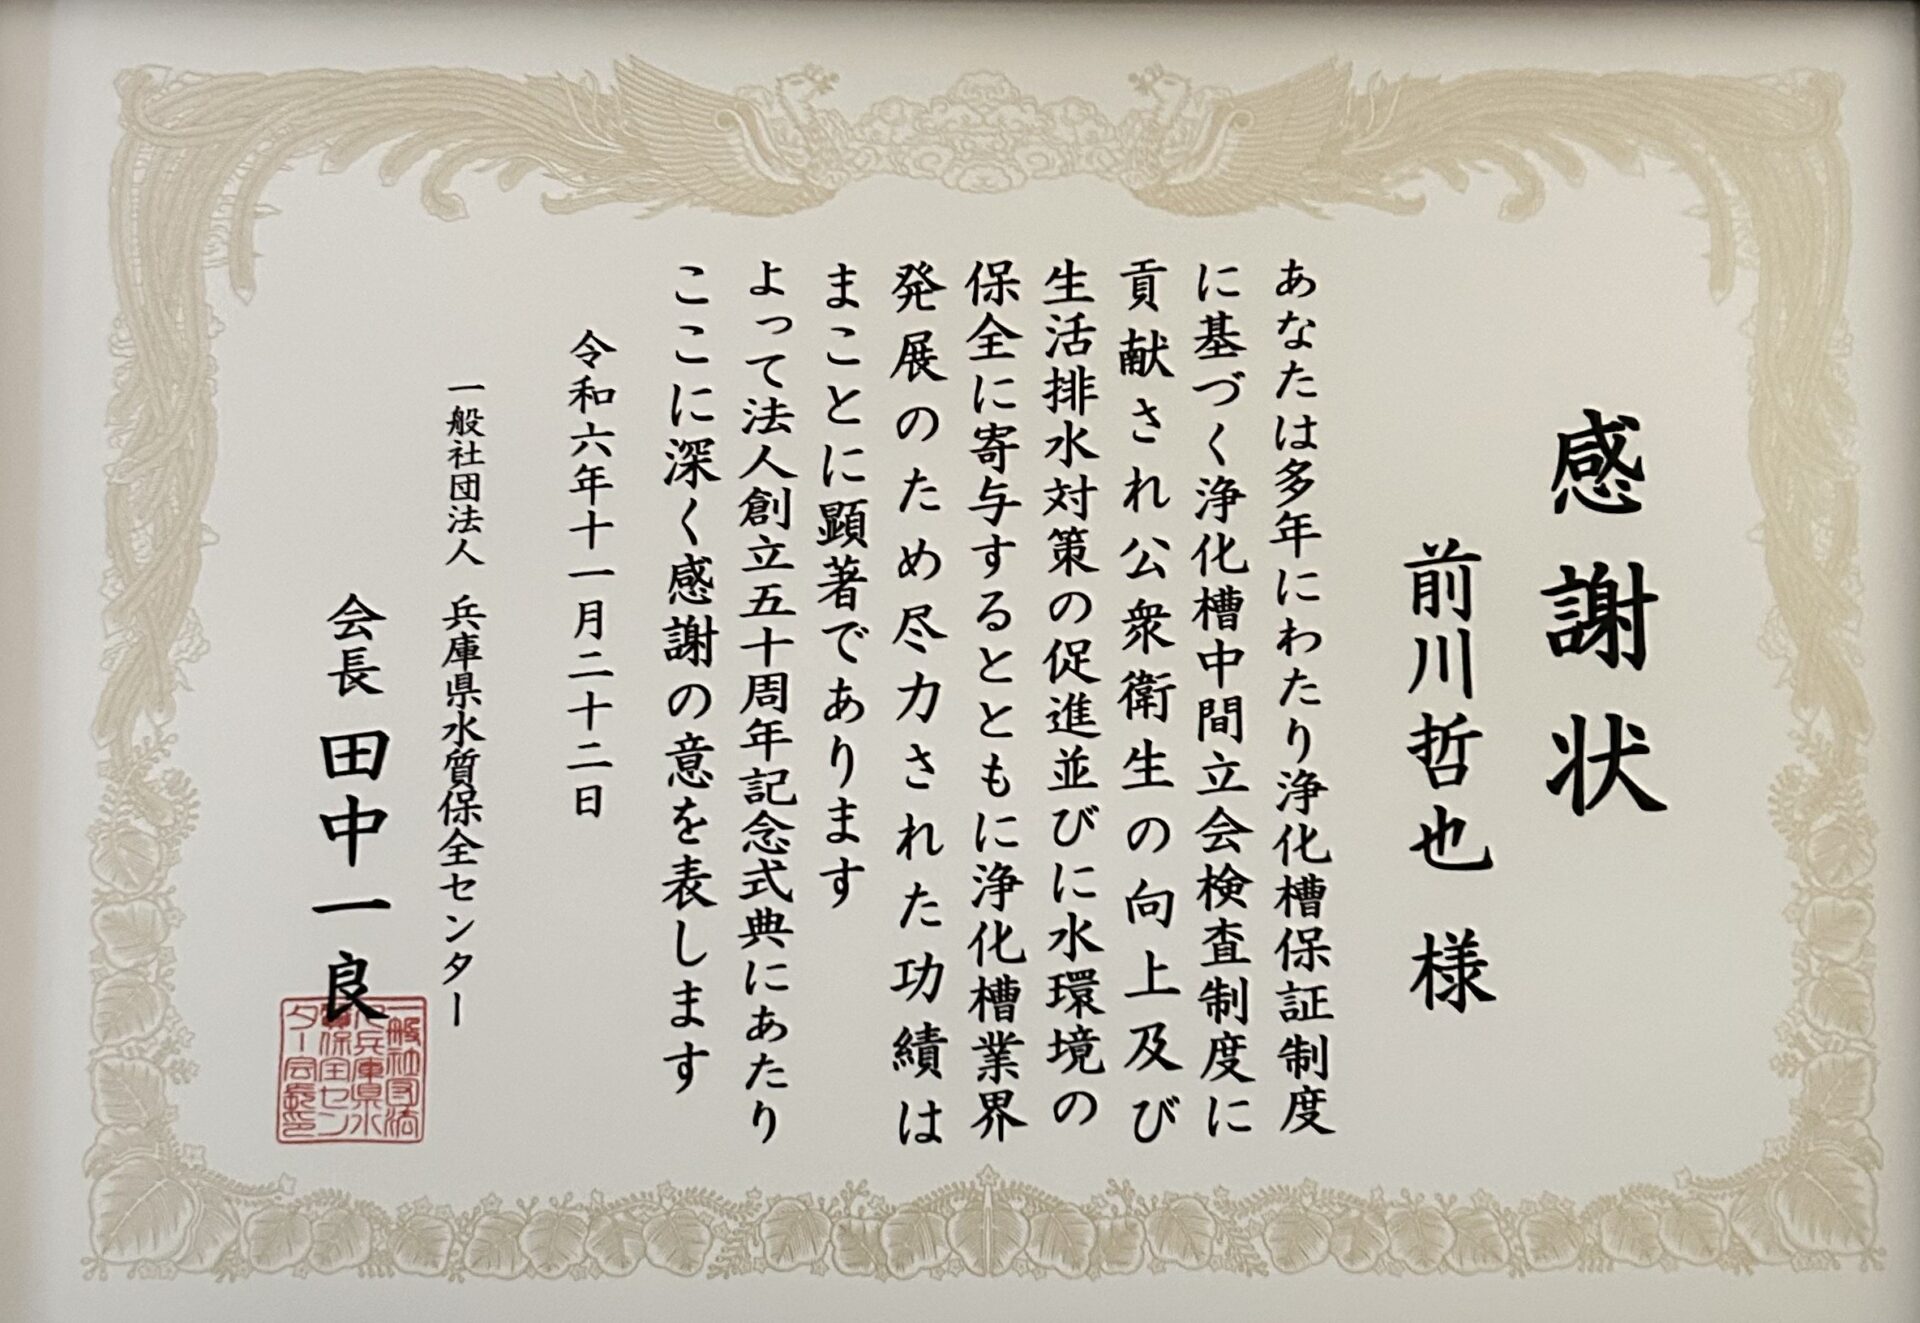 感謝状
前川哲也 様
あなたは多年にわたり浄化槽保証制度
に基づく浄化槽中間立会検査制度に
貢献され公衆衛生の向上及び
生活排水対策の促進並びに水環境の
保全に寄与するとともに浄化槽業界
発展のため尽力された功績は
まことに顕著であります
よって法人創立五十周年記念式典にあたり
ここに深く感謝の意を表します
令和六年十一月二十二日
一般社団法人 兵庫県水質保全センター
会長 田中一良
一般社団法
人兵庫県水
質保全セン
ター会長印